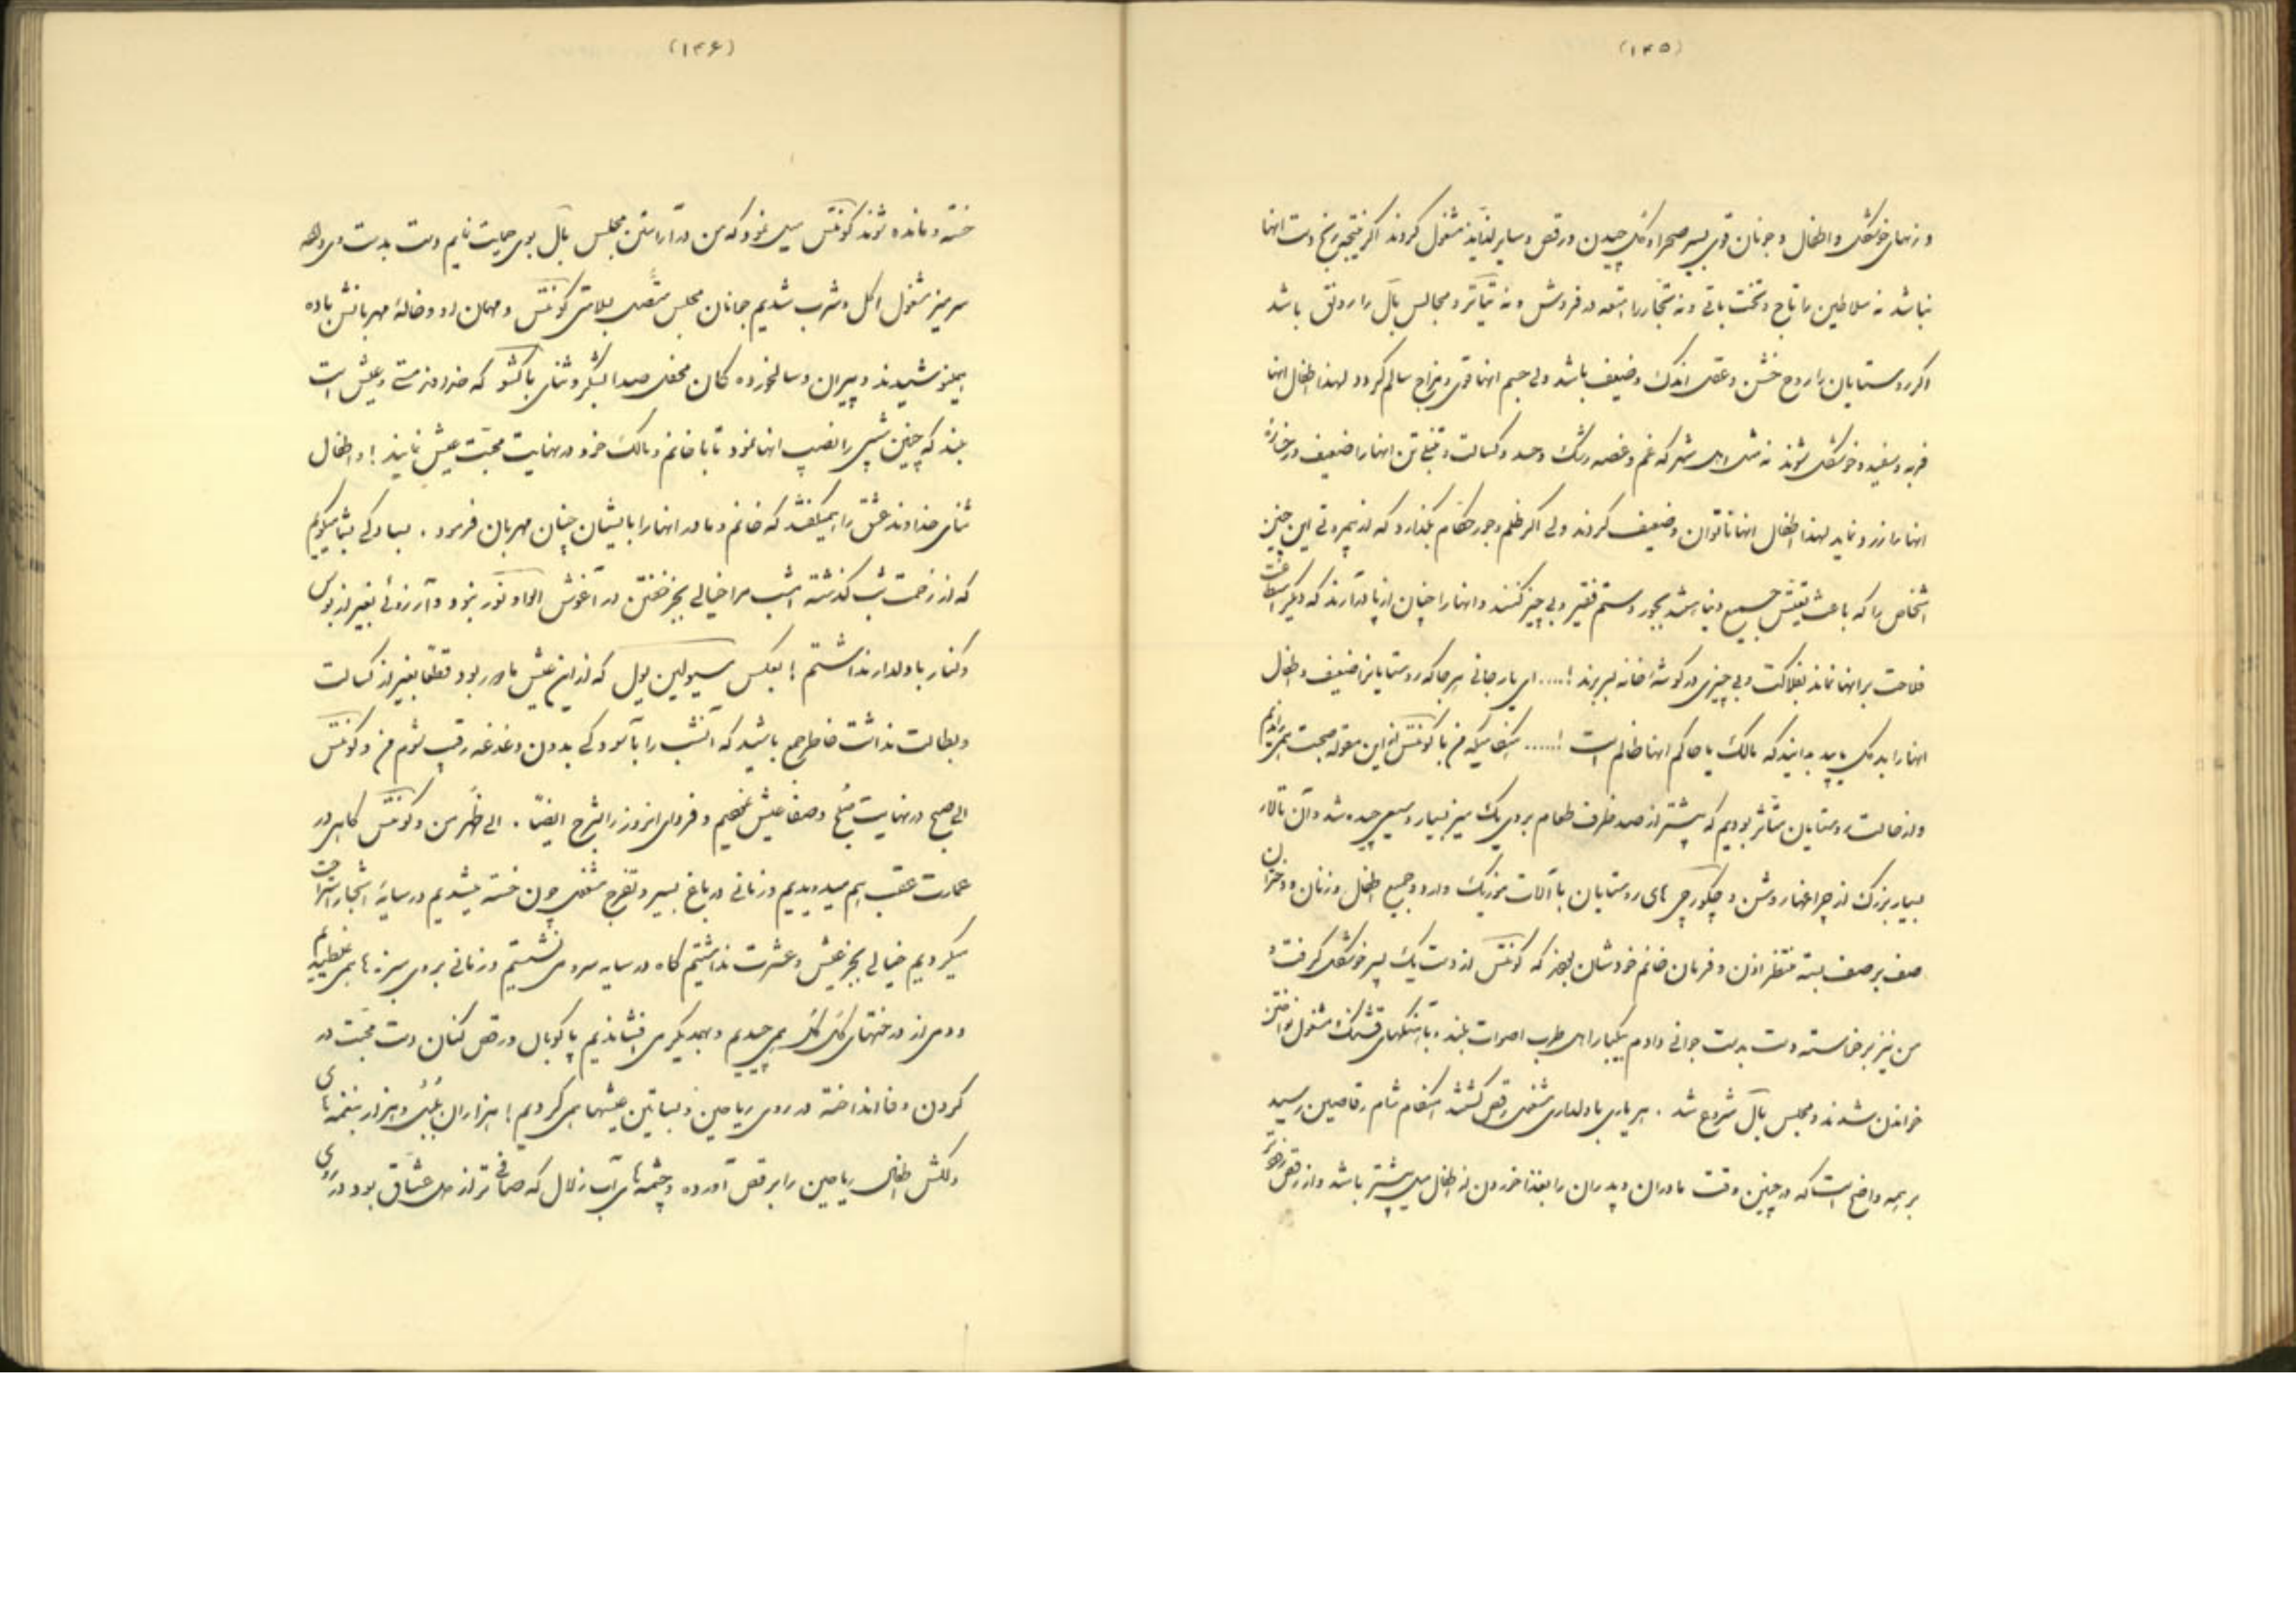 (۱۴۵)
و زنهای خوشگل و اطفال و جوانان قوی بسیر صحرا و گل چیدن و رقص و سایر لذایذ مشغول گردند اگر نتیجه رنج دست انها
نباشد نه سلاطین را تاج و تخت باقی و نه تجار را امتعه در فروش و نه تیآتر و مجالس بال را رونق باشد
اگر روستایان را روح خشن و عقل اندک و ضعیف باشد ولی جسم انها قوی و مزاج سالم گردد لهذا اطفال انها
فربه و سفید و خوشگل شوند نه مثل اهل شهر که غم و غصه و رشک و حسد و کسالت و تنبلی تن انها را ضعیف و رخسارهٔ
انها را زرد نماید لهذا اطفال انها ناتوان و ضعیف گردند ولی اگر ظلم و جور حکام بگذارد که از بیمروتی این چنین
اشخاص را که باعث تعیش جمیع دنیا باشد بجور و ستم فقیر و بی چیز کنند و انها را چنان از پا درآرند که دیگر استطاعت
فلاحت بر انها نماند بفلاکت و بی چیزی در گوشهٔ خانه بسر برند !..... ای یار جانی هر جا که روستایانرا ضعیف و اطفال
انها را بد گل یابید بدانید که مالک یا حاکم انها ظالم است !..... هنگامیکه من با کونتس از این مقوله صحبت همی راندیم
و از حالت روستایان متأثر بودیم که بیشتر از صد ظرف طعام بروی یک میز بسیار وسیعی چیده شد و آن تالار
بسیار بزرگ از چراغها روشن و چگورچی های روستایان با آلات موزیک وارد و جمیع اطفال و زنان و دختران
صف بر صف بسته منتظر اذن و فرمان خانم خودشان بودند که کونتس از دست یک پسر خوشگل گرفت و
من نیز برخاسته دست بدست جوانی دادم بیکبار اهل طرب اصوات بلند و بآهنگهای قشنگ مشغول نواختن
خواندن شدند و مجلس بال شروع شد . هر یاری با دلداری مشغول رقص گشتند هنگام شام رقاصین رسید
بر همه واضح است که در چنین وقت مادران و پدران را بغذا خوردن از اطفال میل بیشتر باشد و از رقص زودتر
(۱۴۶)
خسته و مانده شوند کونتس میل نمود که من در آراستن مجلس بال بوی حمایت نمایم دست بدست وی داده
سر میز مشغول اکل و شرب شدیم جوانان مجلس متصل بسلامتی کونتس و مهمان او و خالهٔ مهربانش باده
همینوشیدند و پیران و سالخورده کان محفل صدا بشکر و ثنای باکشو که خداوند مستی و عیش است
بلند که چنین شبی را نصیب انها نمود تا با خانم و مالک خود در نهایت محبت عیش نمایند ! و اطفال
ثنای خداوند عشق را همیگفتند که خانم و مادر انها را با ایشان چنان مهربان فرمود . بسادگی بشما میگویم
که از زحمت شب گذشته امشب مرا خیالی بجز خفتن در آغوش الواونور نبود و آرزوئی بغیر از بوس
و کنار با دلدار نداشتم ! بعکس مسیولین یول که از این عیش مأمور بود قطعا بغیر از کسالت
و بطالت نداشت خاطر جمع باشید که آنشب را بآسودگی بدون دغدغه رقیب شوم من و کونتس
الی صبح در نهایت صلح و صفا عیش نمودیم و فردای انروز را بشرح ایضاً . الی ظهر من و کونتس گاهی در
عمارت عقب هم میدویدیم و زمانی در باغ بسیر و تفرج مشغول چون خسته میشدیم در سایهٔ اشجار استراحت
میکردیم خیالی بجز عیش و عشرت نداشتیم گاه در سایه سروی نشستیم و زمانی بروی سبزه ها همی غلطیدیم
و دمی از درختهای گل گل همی چیدیم و بهمدیگر می افشاندیم پا کوبان و رقص کنان دست محبت در
گردن وفا انداخته در روی ریاحین و بساتین عیشها همی کردیم ! هزاران بلبل و هزار بنغمه های
دلکش اطفال ریاحین را برقص آورده و چشمه های آب زلال که صافی تر از دل عشاق بود در روی